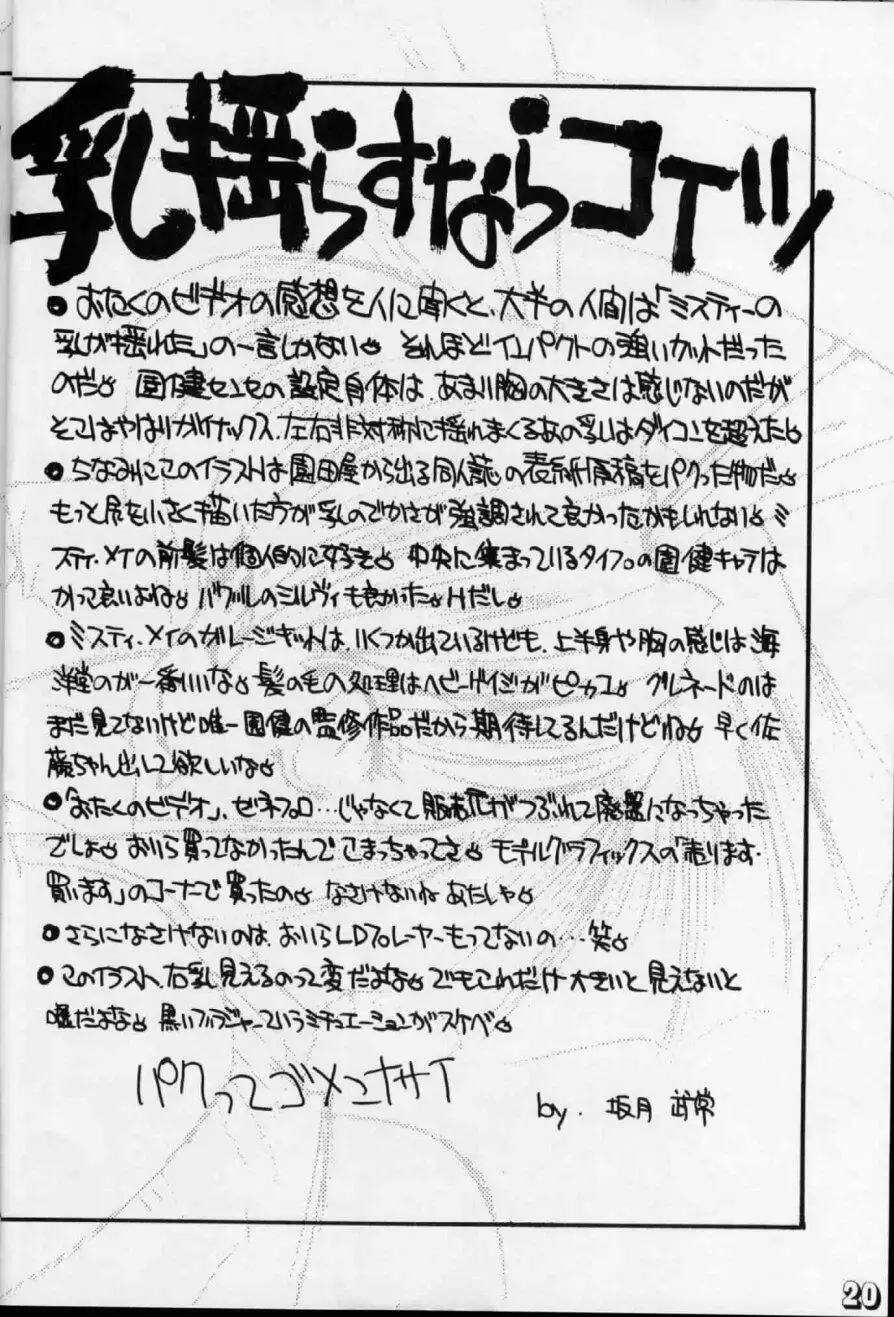 乳揺らすならコイツ
●おたくのビデオの感想を人に聞くと、大半の人間は「ミスティーの
乳が揺れた」の一言しかない。それほどインパクトの強いカットだった
のだ。園健センセの設定身体は、あまり胸の大きさは感じないのだが
そこはやはりガイナックス、左右非対称に揺れまくるあの乳はダイコンを超えた。
●ちなみにこのイラストは園田屋から出る同人誌の表紙原稿をパクった物だ。
もっと尻を小さく描いた方が乳のでかさが強調されて良かったかもしれない。ミ
スティ・メイの前髪は個人的に好き。中央に集まっているタイプの園健キャラは
かって良いよね。パウルのシルヴィも良かった。Hだし。
●ミスティ・メイのガレージキットは、いくつか出ているけども、上半身や胸の感じは海
洋堂のが一番いいな。髪の毛の処理はヘビーゲイジがピカコ。グルネードのは
まだ見てないけど唯一園健の監修作品だから期待してるんだけどね。早く佐
藤ちゃん出して欲しいな。
●「おたくのビデオ」、ゼネプロ…じゃなくて販売元がつぶれて廃盤になっちゃった
でしょ。おいら買ってなかったんでこまっちゃってさ。モデルグラフィックスの「売ります・
買います」のコーナーで買ったの。なさけないねあたしゃ。
●さらになさけないのは、おいらLDプレーヤーもってないの…笑。
●このイラスト、右乳見えるのって変だよな。でもこれだけ大きいと見えないと
嘘だよな。黒いブラジャーっていうシチュエーションがスケベ。
パクってゴメンナサイ
by. 坂月 武常
20